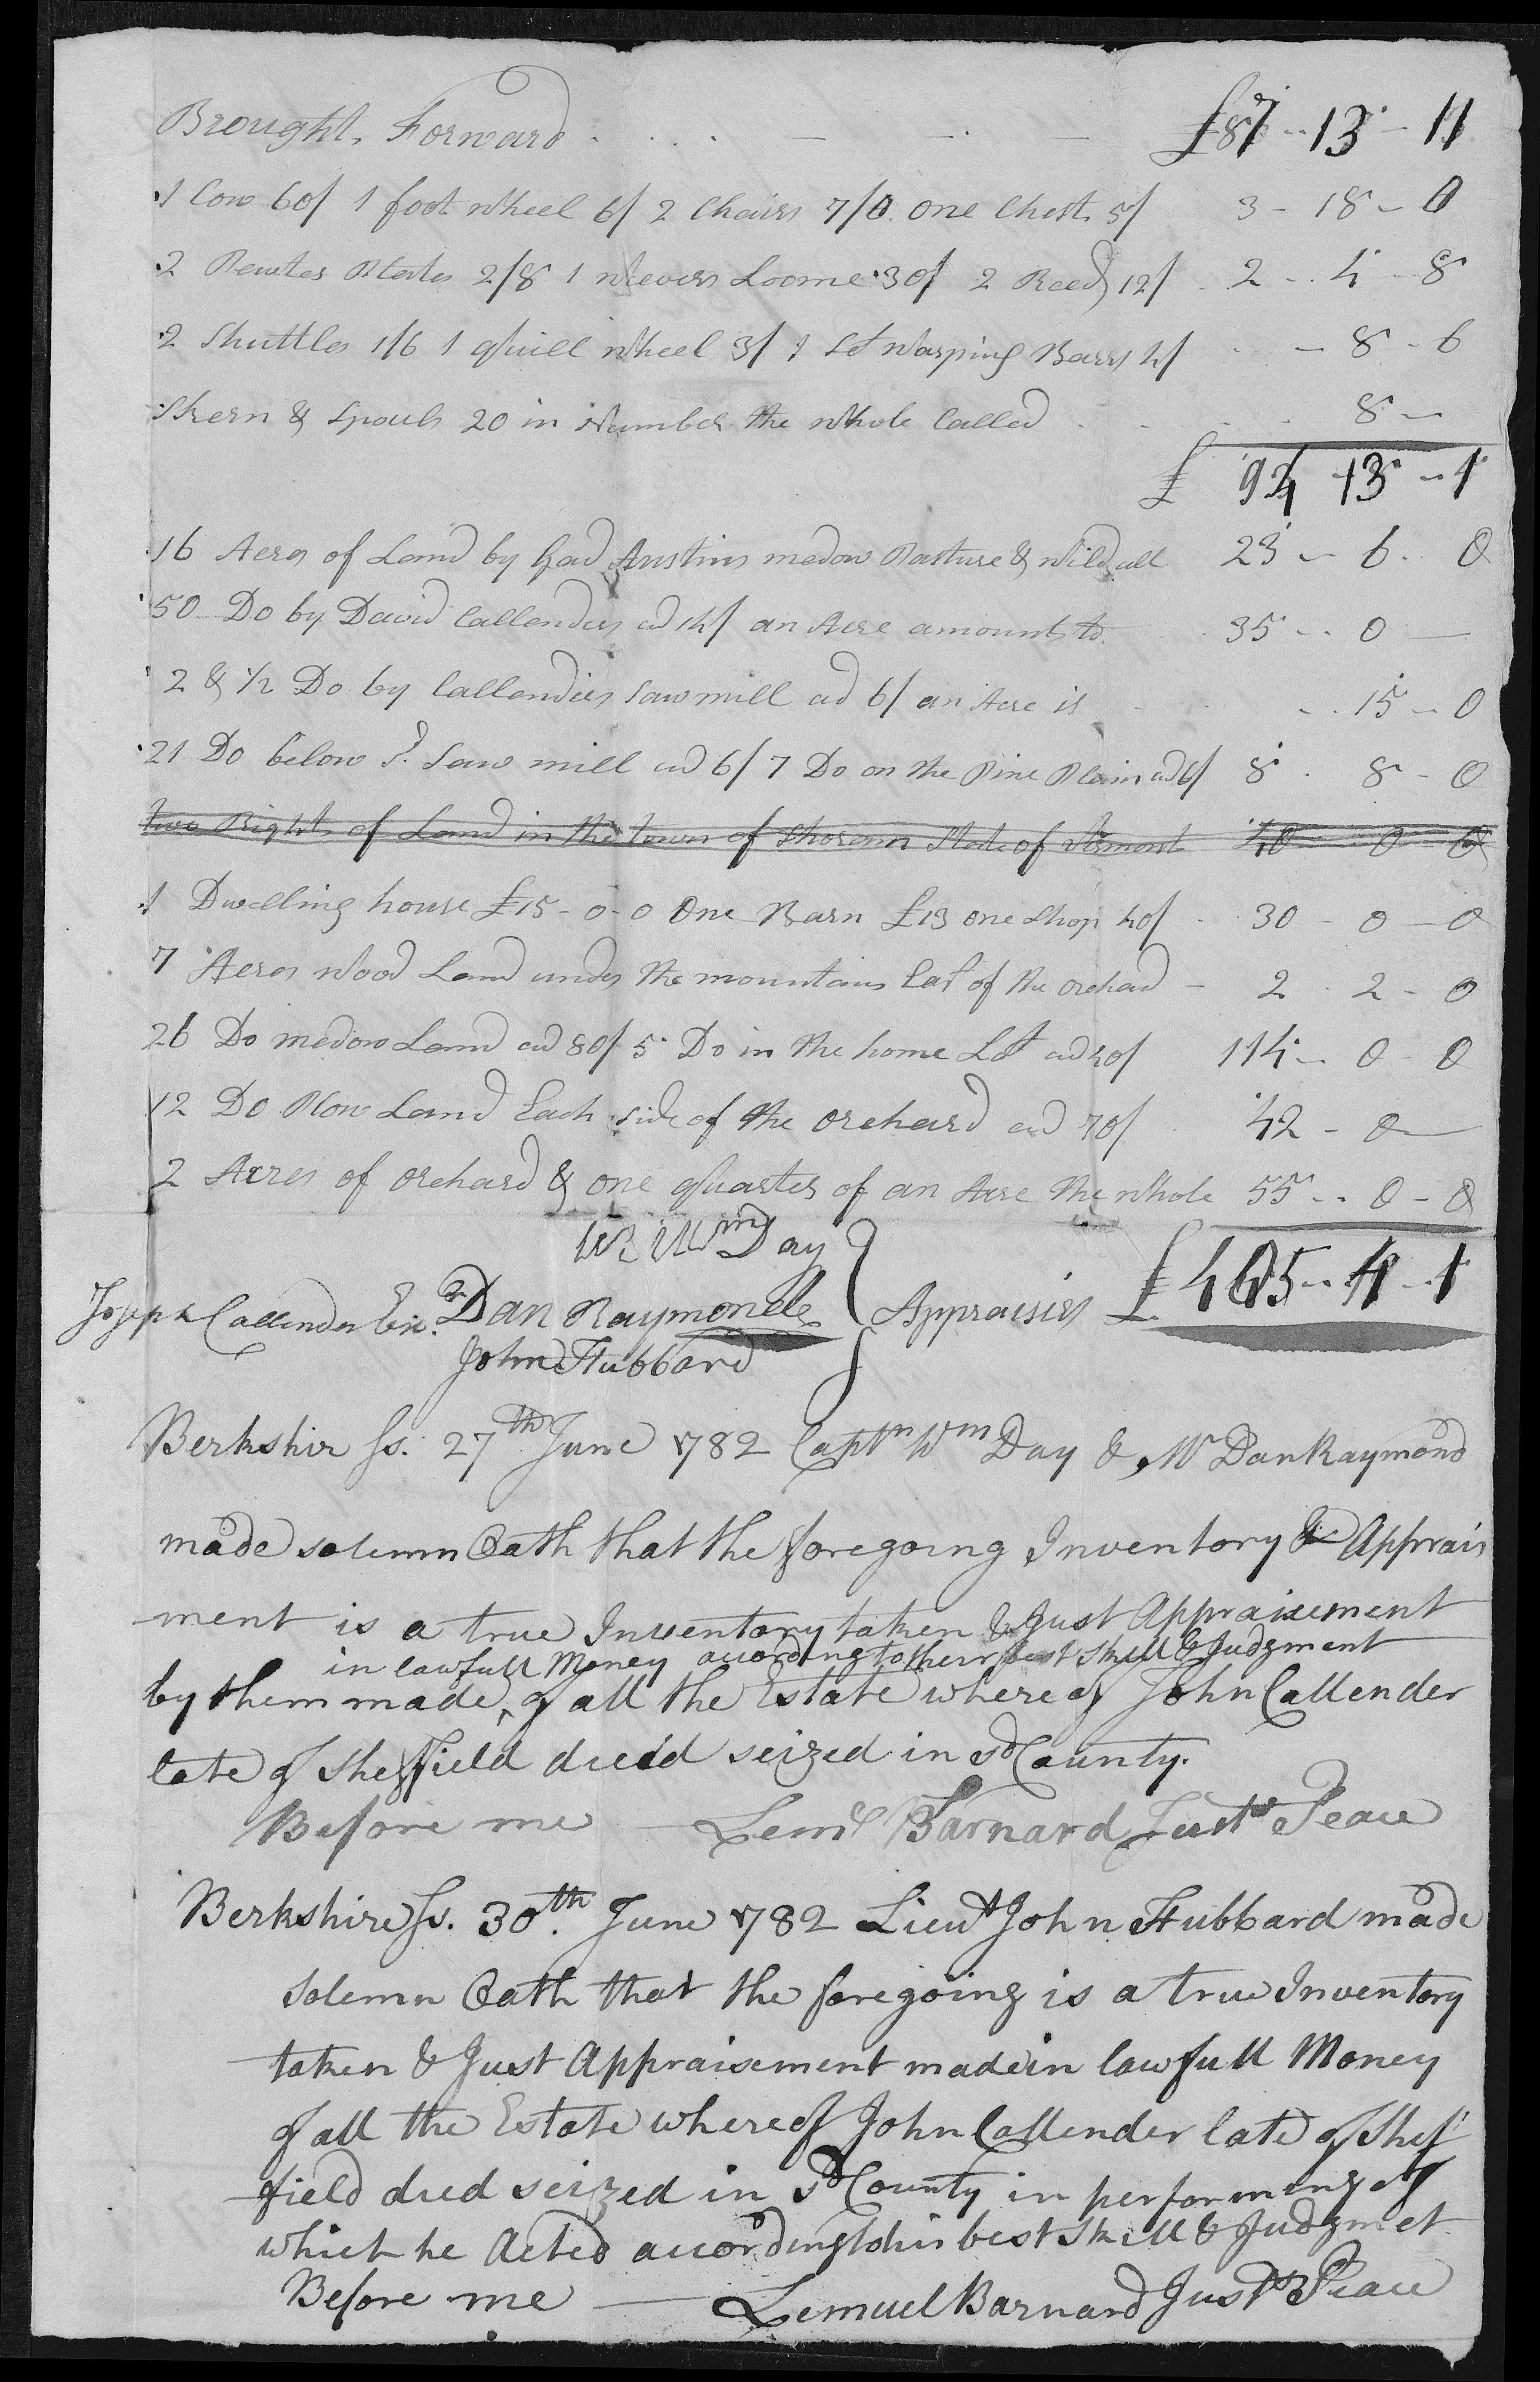 Brought Forward £87 - 13 - 11
1 Cow 60/ 1 foot Wheel 6/ 2 Chairs 7/0 One Chest 5/ 3 - 18 - 0
2 Pewter Plates 2/8 1 Weevers Loome 30/ 2 Reeds 12/ 2 - 4 - 8
2 Shuttles 1/6 1 Quill Wheel 3/ 1 Set Warping Barrs 4/ - 8 - 6
Skern & Spouls 20 in Number the Whole Called 8 -
£ 94 13 - 1
16 Acres of Land by Gad Austins medow Pasture & Wild all 23 - 6 - 0
50 Do by David Callenders ad 14/ an Acre amounts to 35 - 0 -
2 & 1/2 Do by Callenders Sawmill ad 6/ an Acre is 15 - 0
21 Do below Sd Saw mill ad 6/ 7 Do on the Pine Plain ad 6/ 8 - 8 - 0
two Rights of Land in the town of Shoram State of Vermont 40 - 0 - 0
1 Dwelling house £15 - 0 - 0 One Barn £13 one Shop 40/ 30 - 0 - 0
7 Acres Wood Land under the mountain East of the orchard - 2 - 2 - 0
26 Do medow Land ad 80/ 5 Do in the home Lot ad 40/ 114 - 0 - 0
12 Do Plow Land Each side of the orchard ad 70/ 42 - 0
2 Acres of orchard & one Quarter of an Acre the Whole 55 - 0 - 0
Wm Day
Joseph Callender Exr. Dan Raymond Appraisers £ 405 - 4 - 1
John Hubbard
Berkshir Ss. 27th June 1782 Captn Wm Day & Mr Dan Raymond
made solemn Oath that the foregoing Inventory & Apprais
ment is a true Inventory taken & Just Appraisement
in lawfull Money according to their best Skill & Judgment
by them made ‸ of all the Estate whereof John Callender
late of Sheffield died seized in sd County.
Before me Leml Barnard Just Peace
Berkshire Ss. 30th. June 1782 Lieut John Hubbard made
Solemn Oath that the foregoing is a true Inventory
taken & Just Appraisement made in lawfull Money
of all the Estate whereof John Callender late of Shef
field died seized in sd County in performing of
which he Acted according to his best Skill & Judgmet
Before me Lemuel Barnard Just Peace